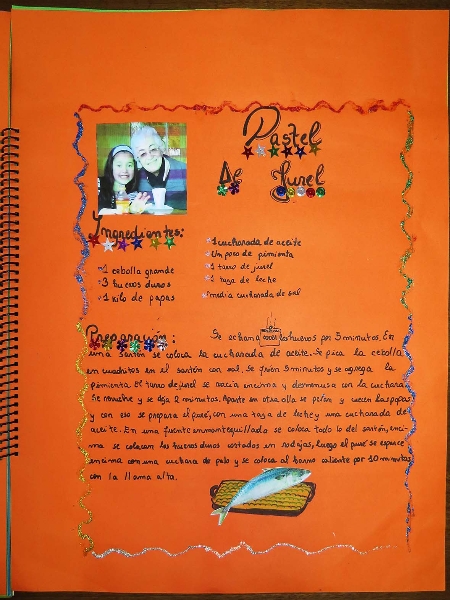 Pastel
de Jurel
Ingredientes:
1 cebolla grande
3 huevos duros
1 kilo de papas
1 cucharada de aceite
Un poco de pimienta
1 tarro de jurel
1 taza de leche
media cucharada de sal
Preparación:
Se echan a cocer los huevos por 5 minutos. En
una sartén se coloca la cucharada de aceite. Se pica la cebolla
en cuadritos en el sartén con sal. Se fríen 5 minutos y se agrega la
pimienta. El tarro de jurel se vacía encima y desmenusa con la cuchara.
Se revuelve y se deja 2 minutos. Aparte en otra olla se pelan y cuecen las papas
y con eso se prepara el puré, con una taza de leche y una cucharada de
aceite. En una fuente enmantequillado se coloca todo lo del sartén, enci-
ma se colocan los huevos duros cortados en rodajas, luego el puré se esparce
encima con una cuchara de palo y se coloca al horno caliente por 10 minutos
con la llama alta.